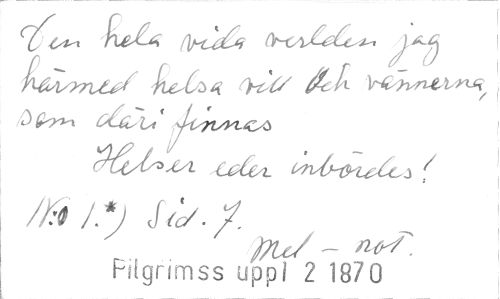 Den hela vida verlden jag
härmed helsa vill Och vännerna,
som däri finnas
Helser eder inbördes!
N:o 1.*) Sid. 7.
Mel - not.
Pilgrimss uppl 2 1870